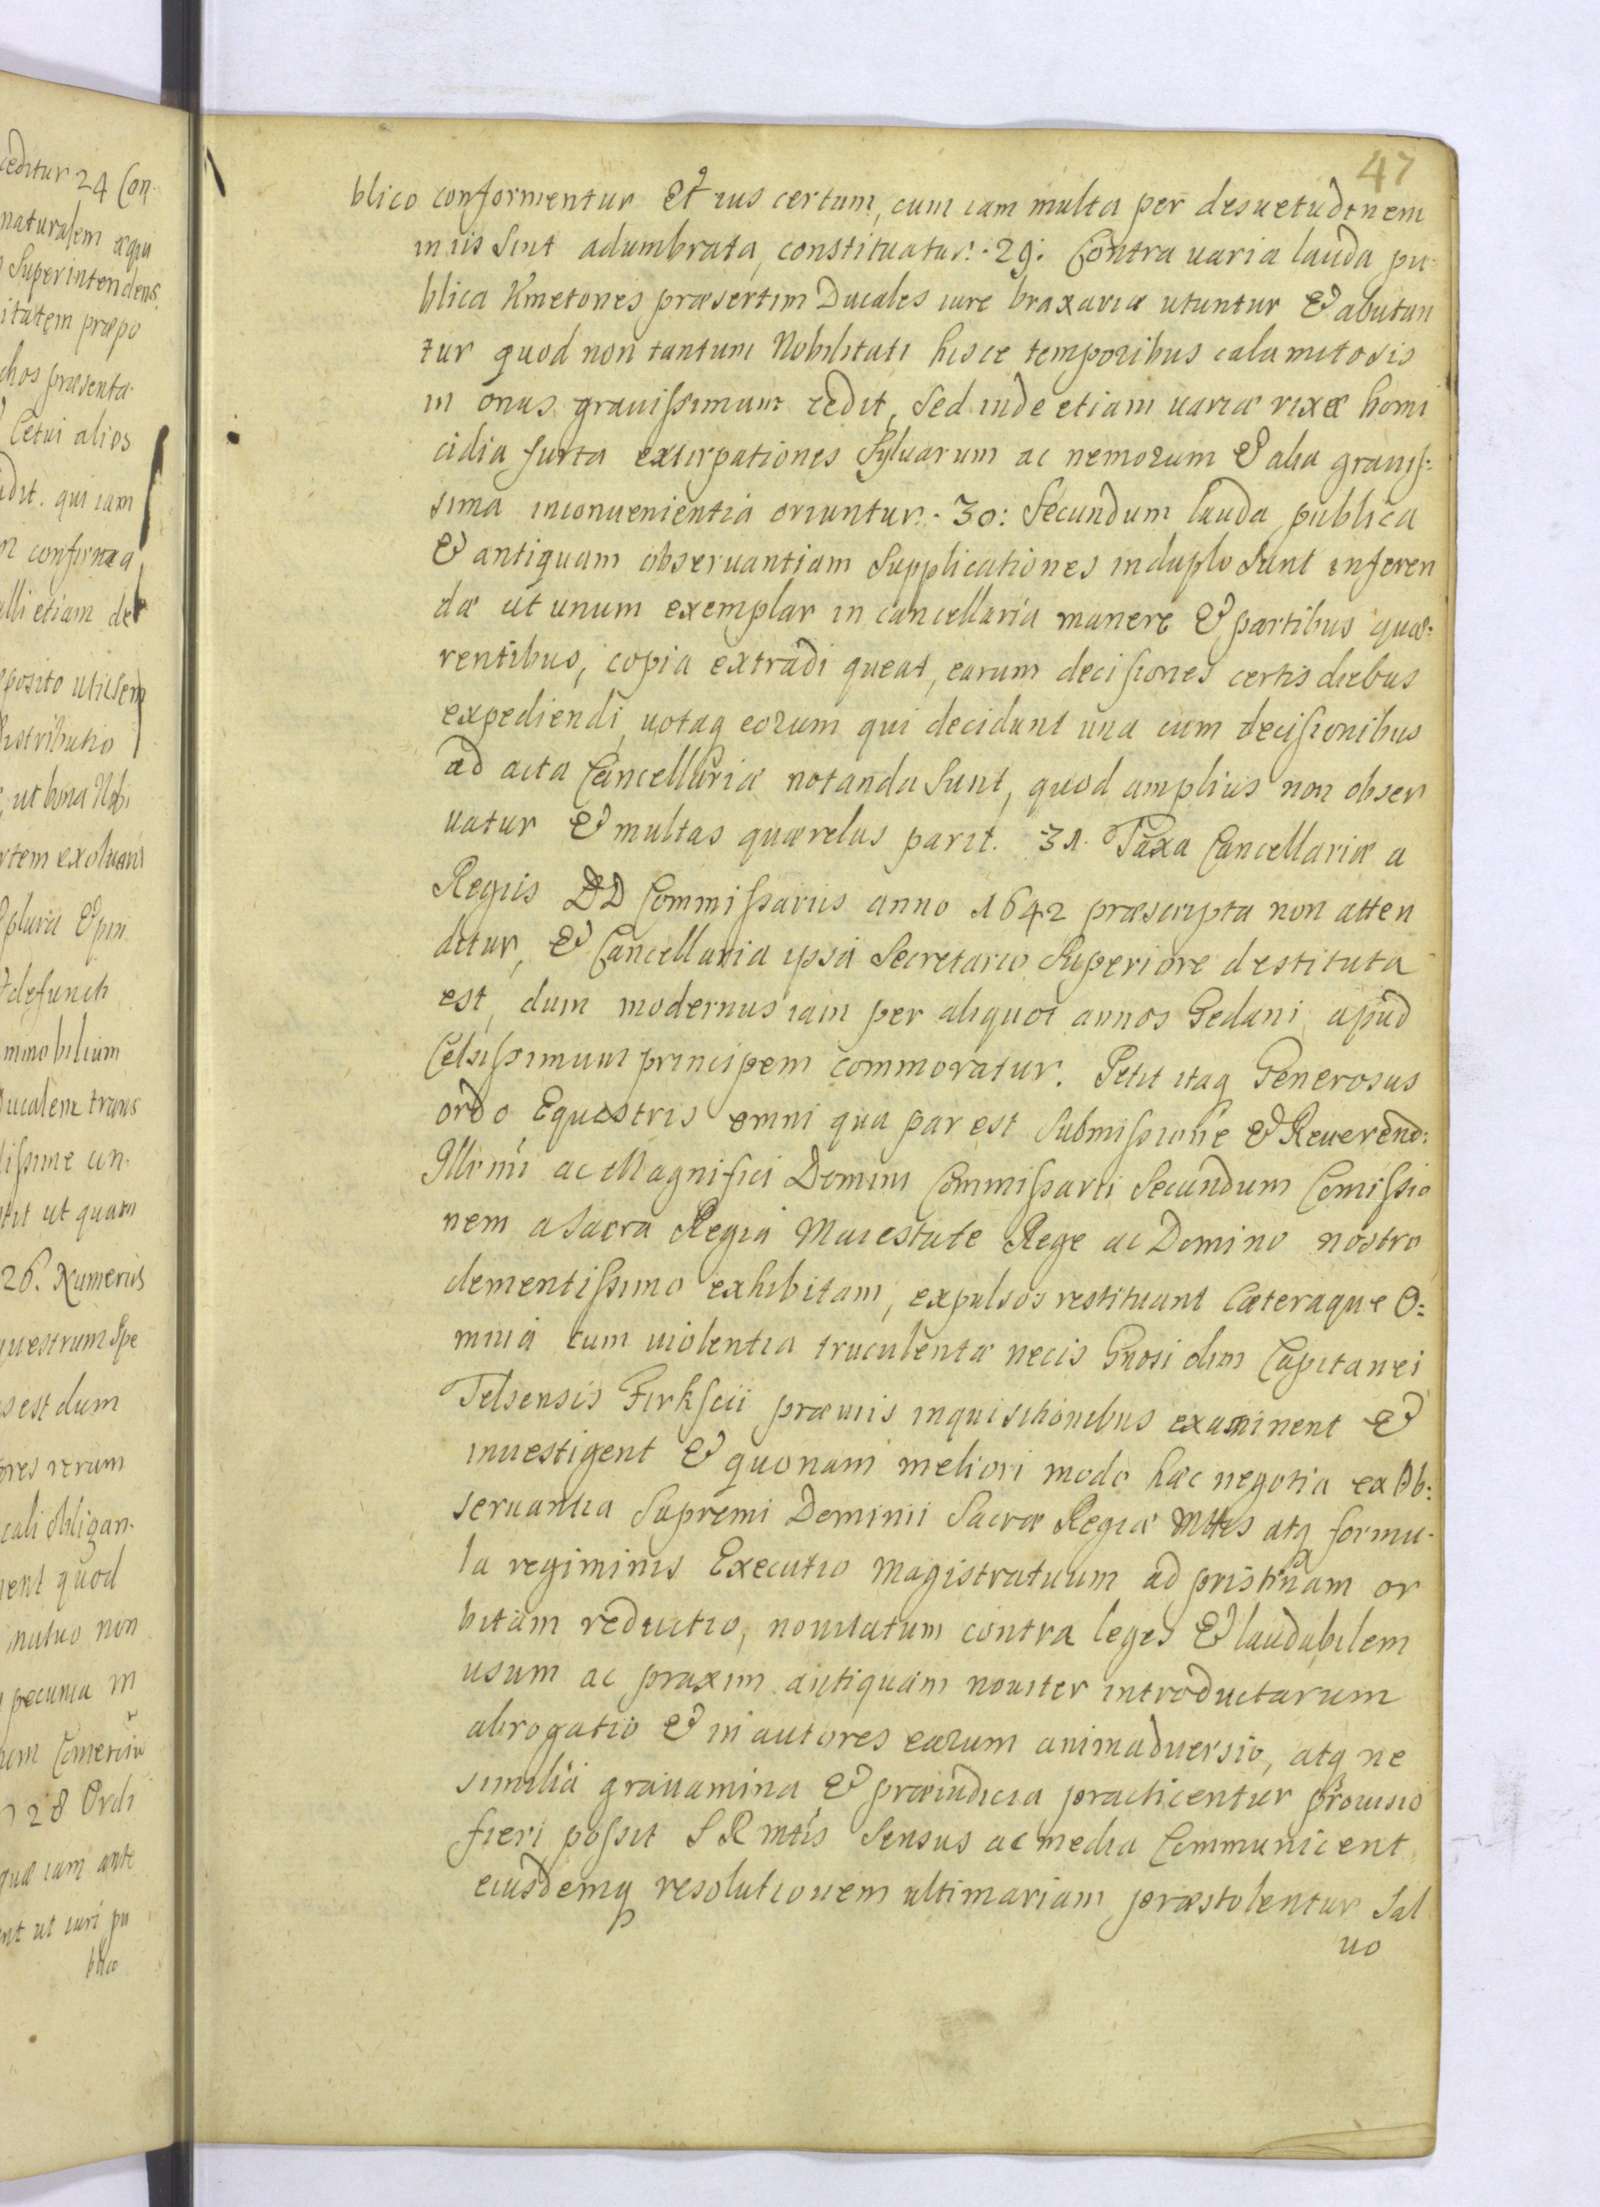 47
blico conformentur Et ius certum, cum iam multa per desuetudinem
in iis sint adumbrata, constituatur. 29: Contra uaria lauda pu-
blica Kmetones præsertim Ducales iure braxariæ utuntur & abutun
tur quod non tantum Nobilitati hisce temporibus calamitosis
in onus grauissimum cedit, sed inde etiam uariæ rixæ homi
cidia furta extirpationes Syluarum ac nemorum & alia grauis-
sima inconuenientia oriuntur. 30: Secundum lauda publica
& antiquam obseruantiam Supplicationes in duplo sunt inferen
dæ ut unum exemplar in cancellaria manere & partibus quæ-
rentibus, copia extradi queat, earum decisiones certis diebus
expediendi, uotaq eorum qui decidunt una cum decisionibus
ad acta Cancellariæ notanda sunt, quod amplius non obser
uatur & multas quærelas parit. 31. Taxa Cancellariæ a
Regiis DD Commissariis anno 1642 præscripta non atten
ditur, & Cancellaria ipsa Secretario Superiore destituta
est, dum modernus iam per aliquot annos Gedani apud
Celsissimum principem commoratur. Petit itaq Generosus
ordo Equestris omni qua par est submissione & Reuerend:
Illrmi ac Magnifici Domini Commissarii secundum Comissio
nem a Sacra Regia Maiestate Rege ac Domino nostro
clementissimo exhibitam, expulsos restituant Cæteraque O-
mnia cum uiolentia truculentæ necis Gnosi olim Capitanei
Telsensis Firkscii præuiis inquisitionibus examinent &
inuestigent & quonam meliori modo hæc negotia ex Ob-
seruantia Supremi Dominii Sacræ Regiæ Mttis atq formu-
la regiminis Executio Magistratuum ad pristinam or
bitam reductio, nouitatum contra leges & laudabilem
usum ac praxim antiquam nouiter introductarum
abrogatio & in autores earum animaduersio, atq ne
similia grauamina & præiudicia practicentur prouisio
fieri possit S R mtis sensus ac media Communicent
eiusdemq resolutionem ultimariam præstolentur Sal
uo